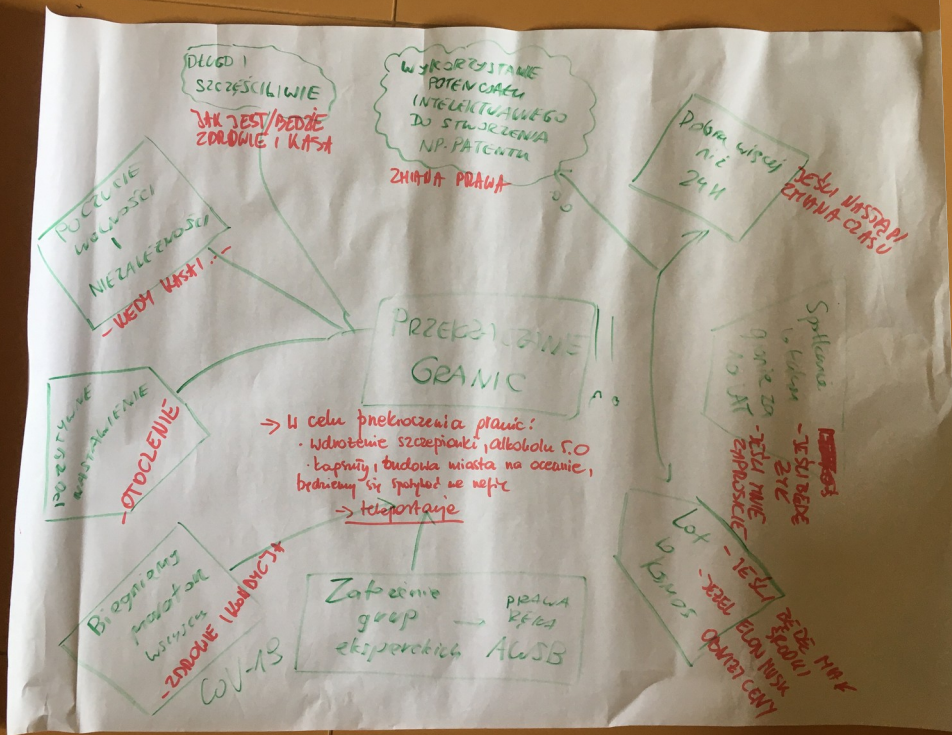 DŁUGO I
SZCZĘŚLIWIE
JAK JEST/BĘDZIE
ZDROWIE I KASA
WYKORZYSTANIE
POTENCJAŁU
INTELEKTUALNEGO
DO STWORZENIA
NP. PATENTU
ZMIANA PRAWA
Doba więcej
niż
24H
JEŚLI NASTĄPI
ZMIANA CZASU
POCZUCIE
WOLNOŚCI
I
NIEZALEŻNOŚCI
- KASA!
PRZEKRACZANIE
GRANIC
Spotkanie
w tym
gronie za
10 LAT
- JEŚLI BĘDĘ
ŻYĆ
- JEŚLI MNIE
ZAPROSICIE
POZYTYWNE
NASTAWIENIE
- OTOCZENIE
→ W celu przekroczenia granic:
· wdrożenie szczepionki, alkoholu 5.0
· kapsuły, budowa miasta na oceanie,
będziemy się spotykać na
→ teleportacje
Biegniemy
maraton
wszyscy
- ZDROWIE I KONDYCJA
COV-19
Założenie
grup
eksperckich
→ PRAWA
RĘKA
AWSB
Lot
w
kosmos
- JEŚLI BĘDĘ MIAŁ
ŚRODKI
- JEŻELI ELON MUSK
OBNIŻY CENY